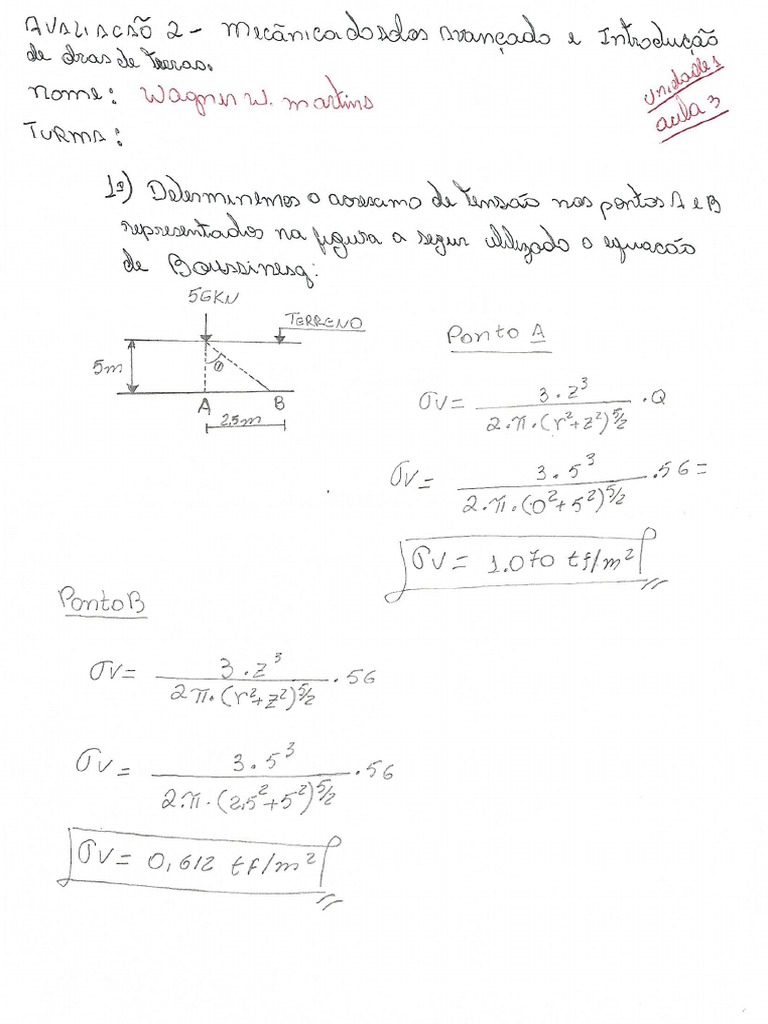 AVALIACÃO 2 - Mecânica dos solos Avançado e Introdução
de obras de terras.
nome: Wagner W. martins
unidade 1
aula 3
TURMA:
1º) Determinemos o acrescimo de tensão nos pontos A e B
representados na figura a seguir utilizado a equacão
de Boussinesq:
56KN
TERRENO
5m
θ
A
B
2,5m
Ponto A
σv = 3.z³ / 2.π.(r²+z²)^5/2 .Q
σv = 3.5³ / 2.π.(0²+5²)^5/2 .56=
σv = 1.070 tf/m²
Ponto B
σv = 3.z³ / 2π.(r²+z²)^5/2 .56
σv = 3.5³ / 2.π.(2,5²+5²)^5/2 .56
σv = 0,612 tf/m²